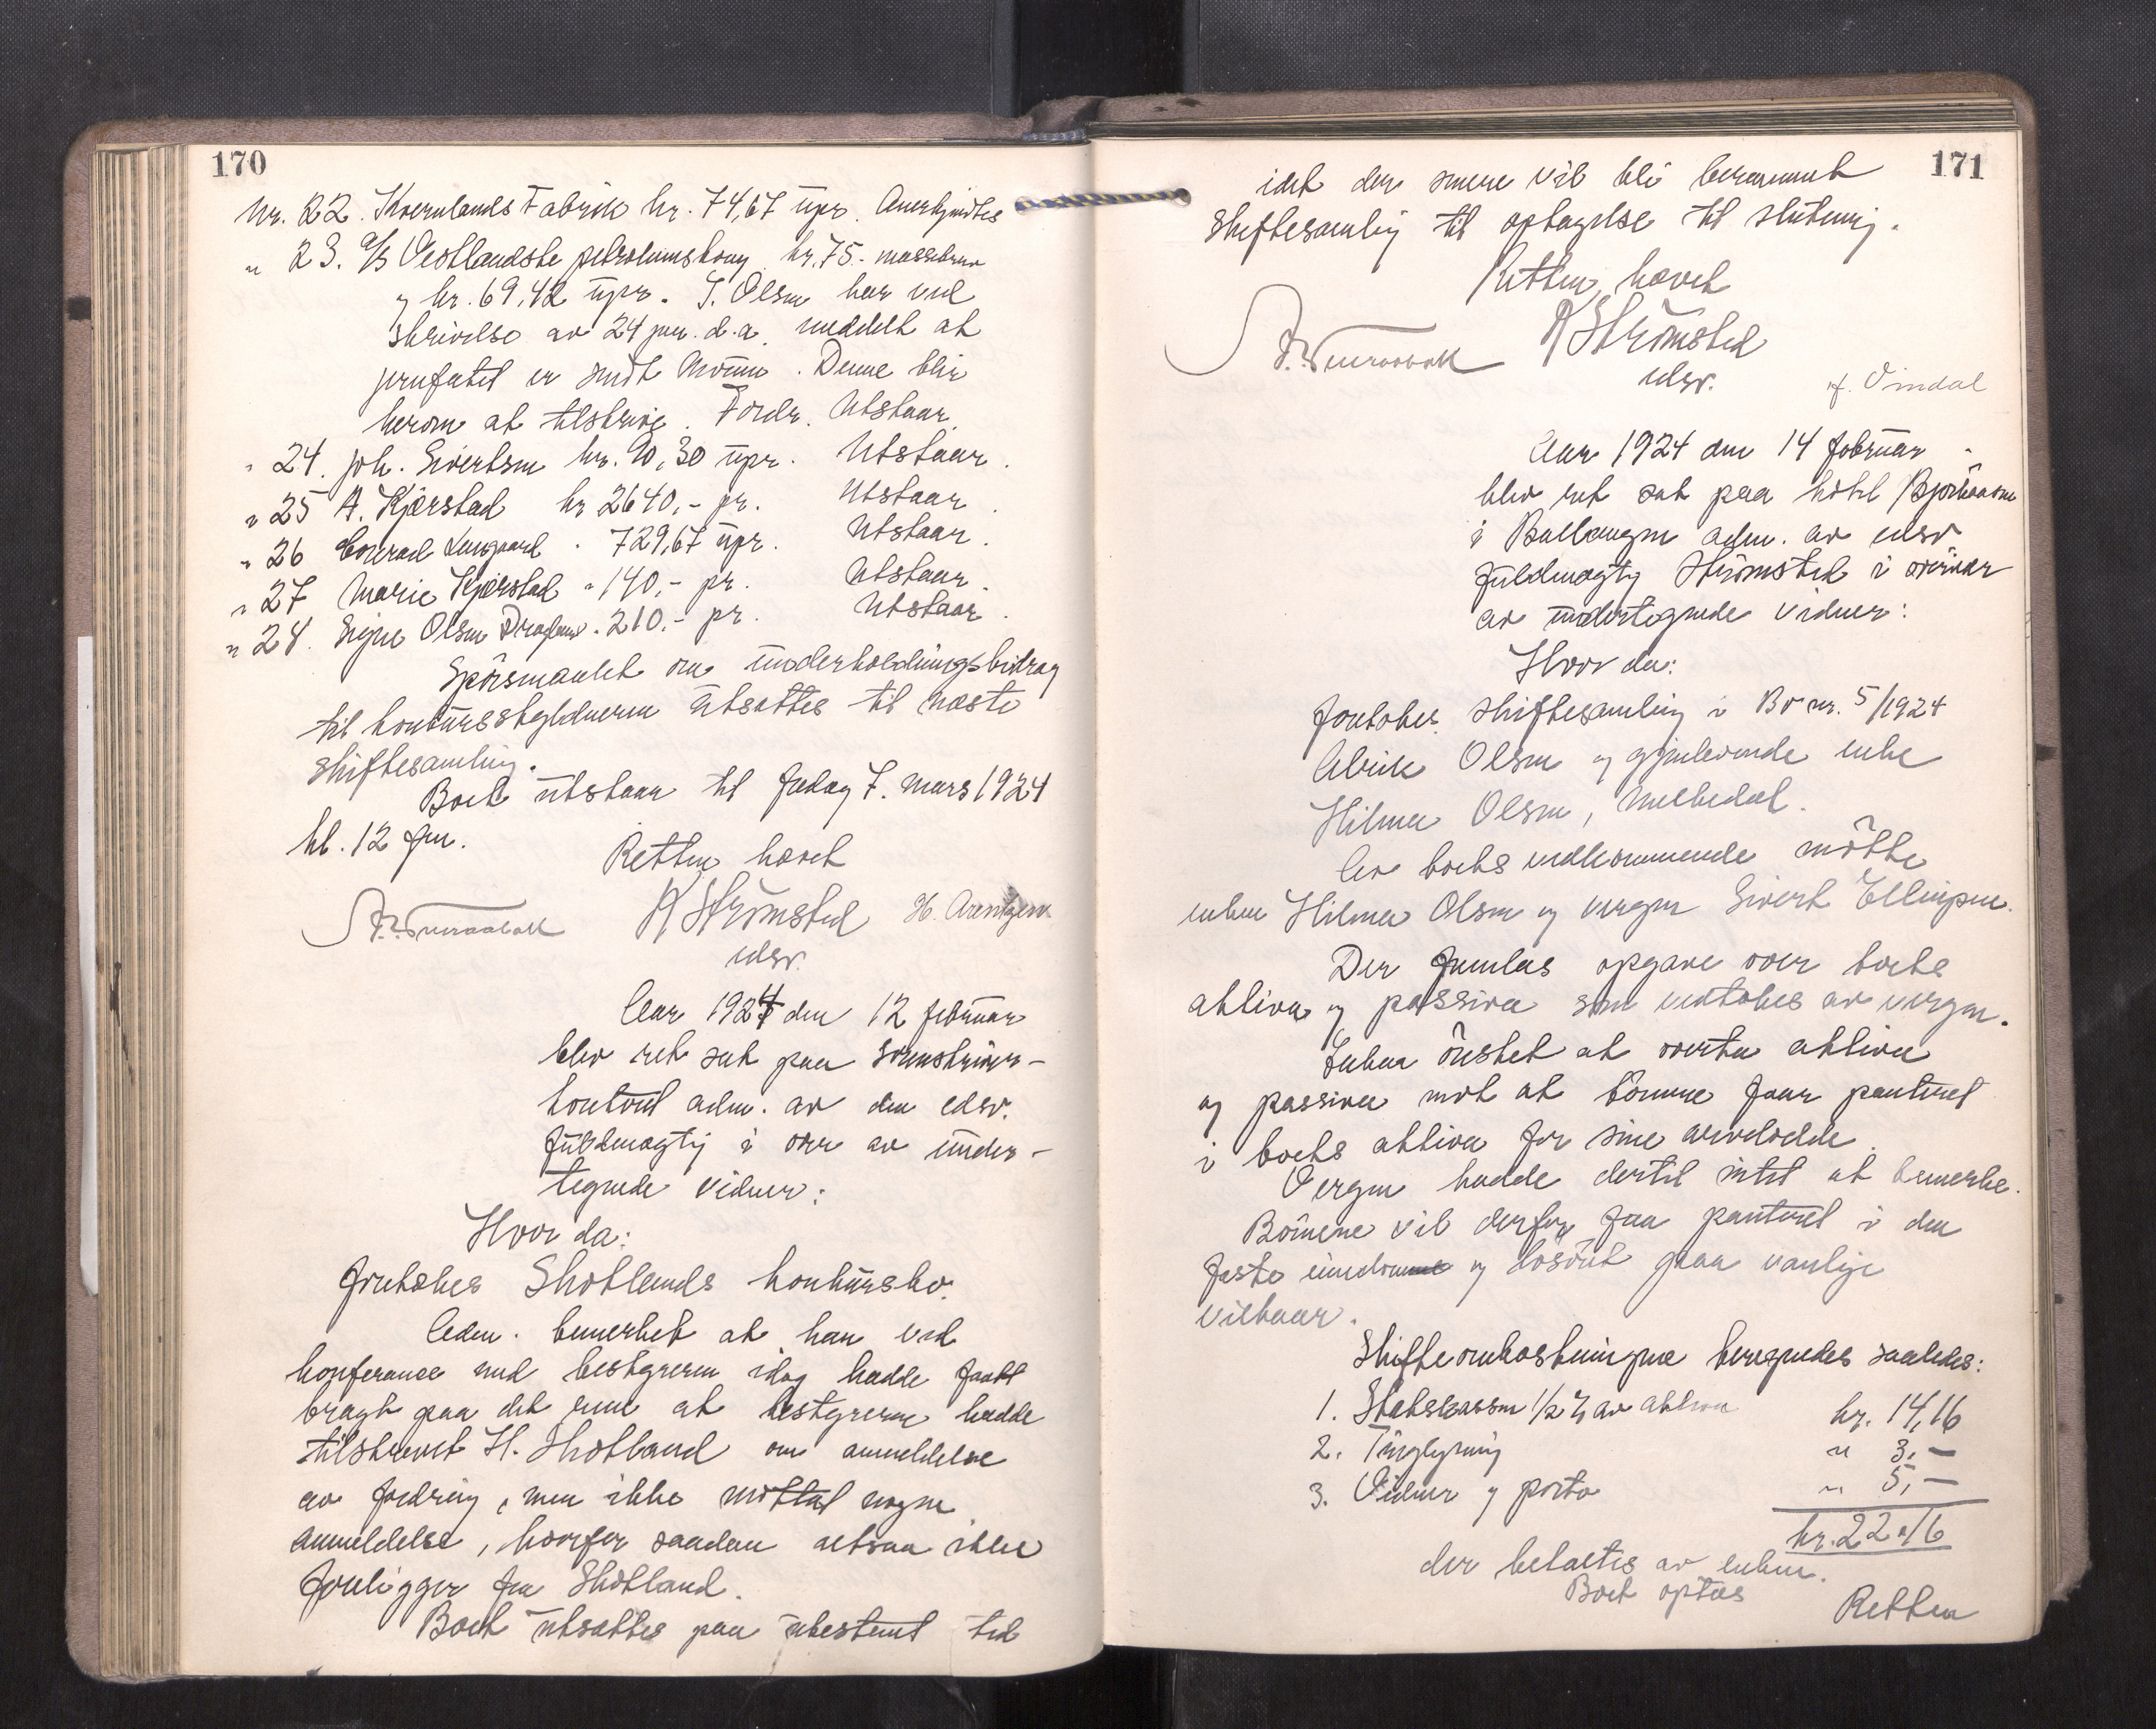 170
Nr. 22. Kvernlands Fabrik kr. 74,67 üpr. Anerkjendtes
" 23. A/S Vestlandske petroleumskomp. kr. 75.-
og kr. 69,42 üpr. J. Olsen har ved
skrivelse av 24 jan. d.a. meddelt at
prufatet er sendt Narvik. Denne blir
herom at tilskrive. Fordr. Utstaar.
" 24. Joh. Sivertsen kr. 90,30 üpr. Utstaar.
" 25 A. Kjærstad kr 2640,- pr. Utstaar.
" 26 Conrad Lengaard " 729,67 üpr. Utstaar.
" 27 Marie Kjærstad " 140,- pr. Utstaar.
" 28. Signe Olsen " 210.- pr. Utstaar.
Spörsmaalet om ünderholdningsbidrag
til konkürsskyldneren ütsattes til næste
skiftesamling.
Boet ütstaar til fredag 7. mars 1924
kl. 12 fm.
Retten hævet
K Strömsted H. Arentzen
edsv.
Aar 1924 den 12 februar
blev ret sat paa sorenskriver-
kontoret adm. av den edsv.
füldmægtig i overv av ünder-
tegnede vidner:
Hvor da:
foretokes Skotlands konkürsbo.
Adm. bemerket at han ved
konferanse med bestyreren idag hadde faatt
bragt paa det rene at bestyreren hadde
tilskrevet H. Skotland om anmeldelse
av fordring, men ikke mottat nogen
anmeldelse, hvorfor saadan altsaa ikke
foreligger fra Skotland.
Boet ütsattes paa übestemt tid
171
idet der senere vil bli berammet
skiftesamling til optagelse til slutning.
Retten hævet
K Strömsted
edsv. Vindal
Aar 1924 den 14 februar
blev ret sat paa hotel
i Ballangen adm. av edsv
füldmægtig Strömsted i overvær
av ündertegnede vidner:
Hvor da:
Foretokes skiftesamling i Bo nr. 5/1924
Alrik Olsen og gjenlevende enke
Hilma Olsen, Melkedal.
Av boets vedkommende mötte
enken Hilma Olsen og vergen Sivert Ellingsen.
Der fremlas opgave over boets
aktiva og passiva som vedtokes av vergen.
Enken önsket at overta aktiva
og passiva mot at börnene faar panteret
i boets aktiva for sine arvelodde.
Vergen hadde dertil intet at bemerke.
Börnene vil derfor faa panteret i den
faste eiendom og lösöret paa vanlige
vilkaar.
Skifteomkostningene beregnedes saaledes:
1. Statskassen 1/2 % av aktiva kr. 14,16
2. Tinglysning " 3,-
3. Vidner og porto " 5,-
kr. 22,16
der betaltes av enken.
Boet optas
Retten